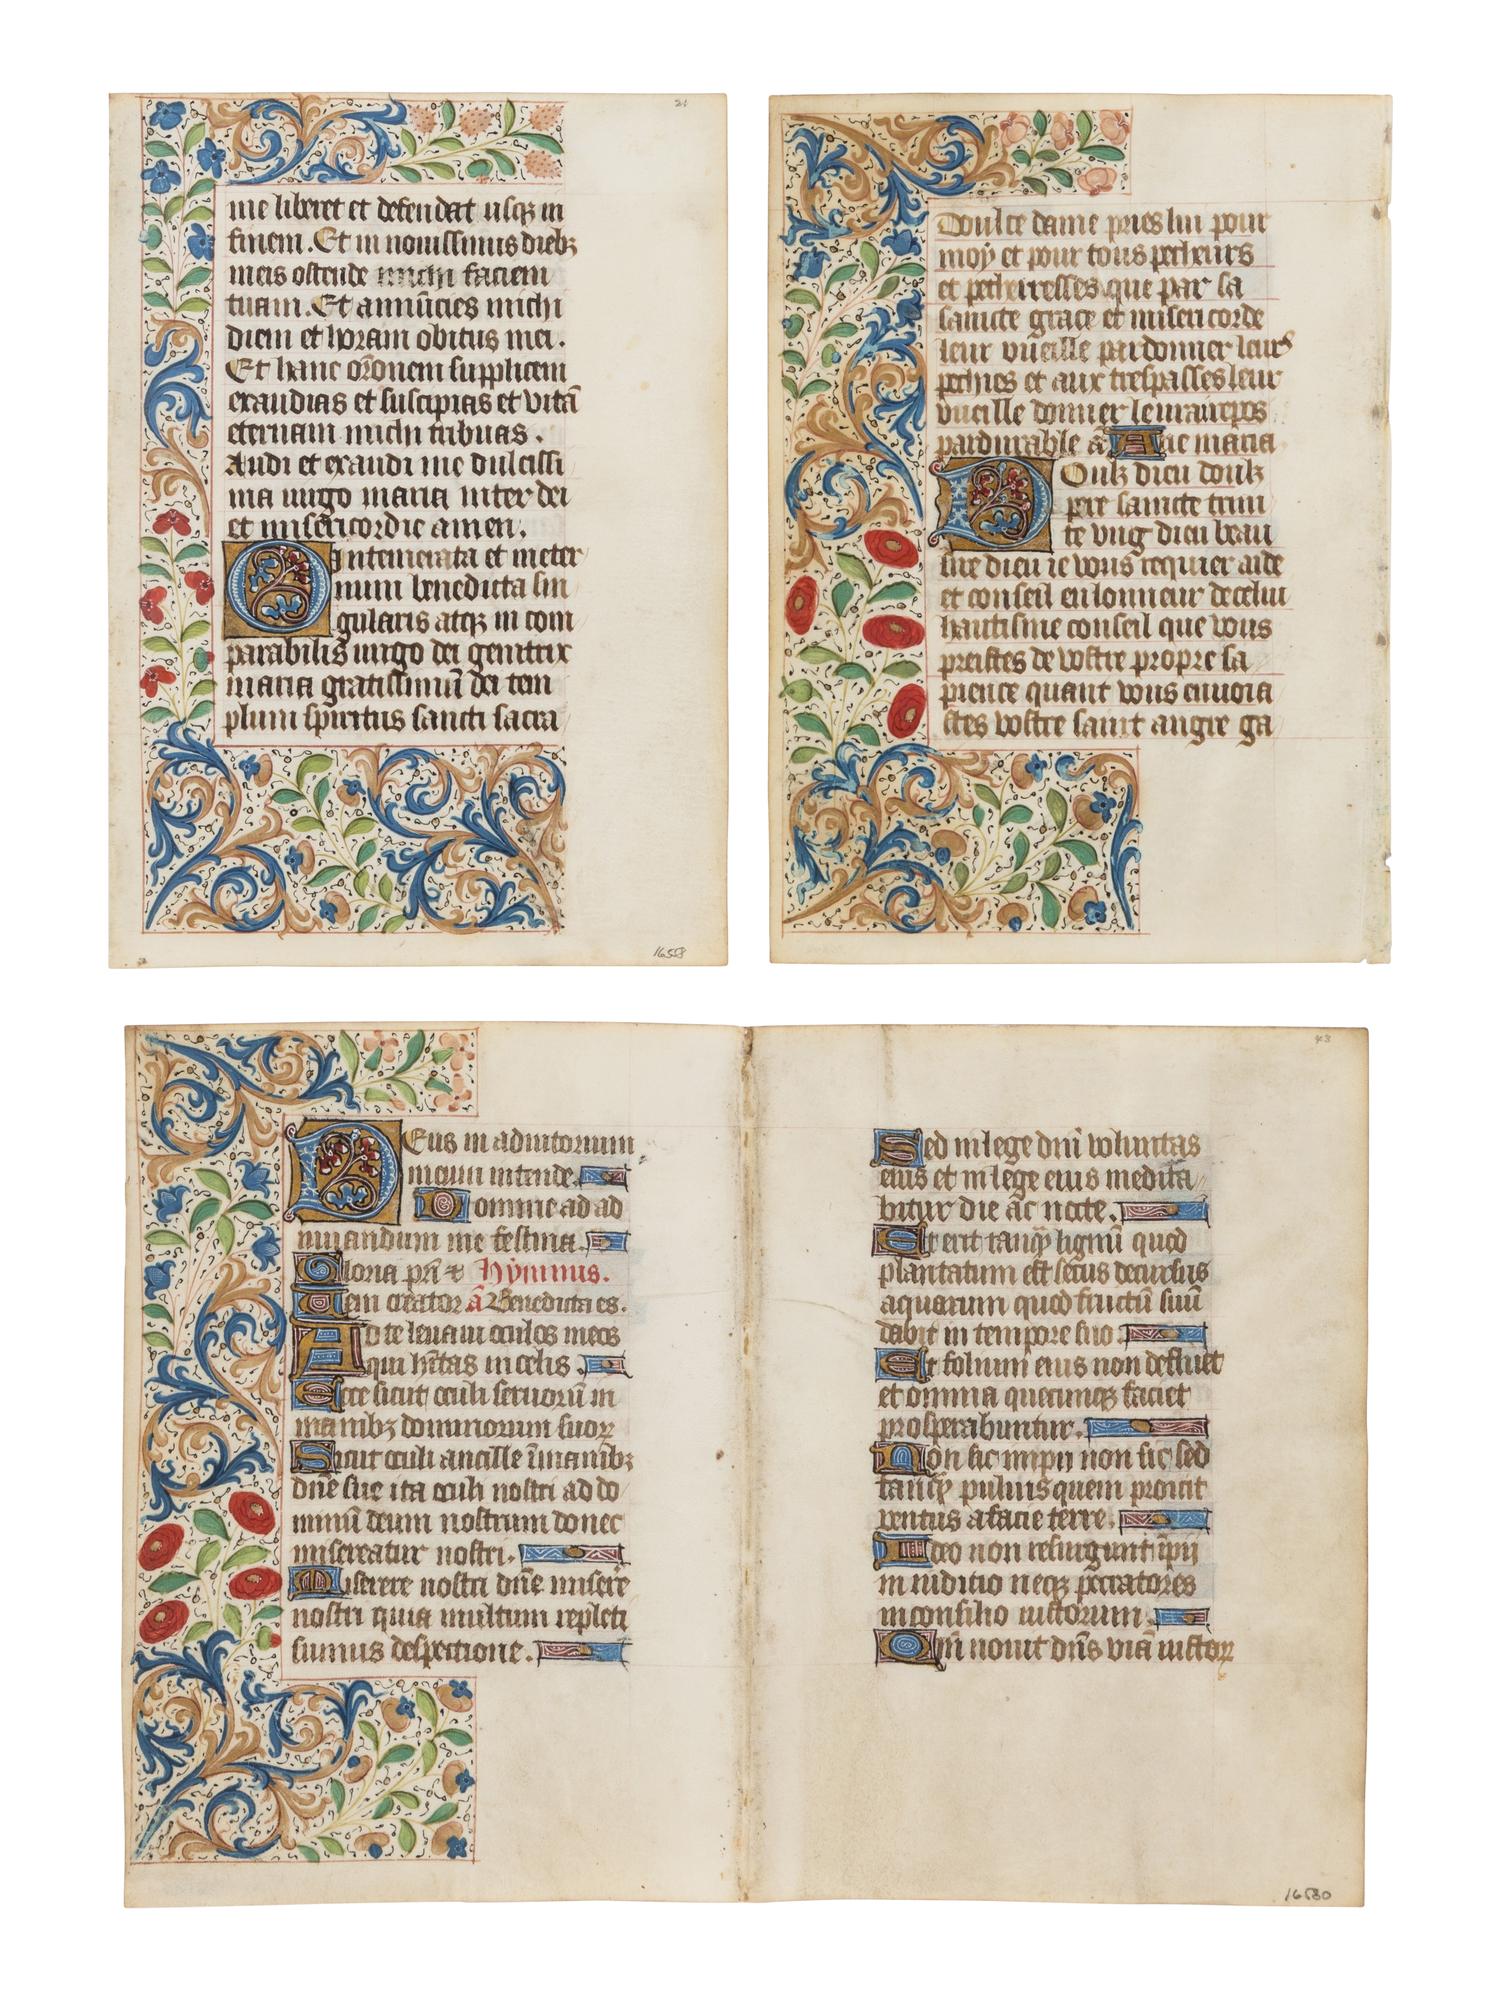 21
me liberet et defendat usqꝫ in
finem. Et in nouissimis diebꝫ
meis ostende michi faciem
tuam. Et annūcies michi
diem et horam obitus mei.
Et hanc or̄onem supplicem
exaudias et suscipias et vitā
eternam michi tribuas.
Audi et exaudi me dulcissi
ma uirgo maria mater dei
et misericordie amen.
O intemerata et in eter
num benedicta sin
gularis atqꝫ in com
parabilis uirgo dei genitrix
maria gratissimū dei tem
plum spiritus sancti sacra
16558
Doulce dame pries lui pour
moy et pour tous pecheurs
et pecheresses que par sa
saincte grace et misericorde
leur vueille pardonner leurs
pechies et aux trespasses leur
vueille donner
pardurable Aue maria
Doulz dieu doulz
pere saincte trini
te vng dieu beau
sire dieu ie vous requier aide
et conseil en lonneur de celui
hautisme conseil que vous
preistes de vostre propre sa
pience quant vous enuoia
stes vostre saint angre ga
Deus in adiutorium
meum intende.
Domine ad ad
iuuandum me festina.
Gloria pr̄i ⁊ Hymnus.
Ueni creator ā Benedicta es.
Ad te leuaui oculos meos
qui h̄itas in celis.
Ecce sicut oculi seruorū in
manibꝫ dominorum suorꝝ
Sicut oculi ancille ī manibꝫ
dn̄e sue ita oculi nostri ad do
minū deum nostrum donec
misereatur nostri.
Miserere nostri dn̄e miserē
nostri quia multum repleti
sumus despectione.
43
Sed in lege dn̄i voluntas
eius et in lege eius medita
bitur die ac nocte.
Et erit tanqꝫ lignū quod
plantatum est secus decursus
aquarum quod fructū suū
dabit in tempore suo.
Et folium eius non defluet
et omnia quecunqꝫ faciet
prosperabuntur.
Non sic impij non sic sed
tanqꝫ puluis quem proicit
uentus a facie terre.
Ideo non resurgunt īpij
in iudicio neqꝫ peccatores
in consilio iustorum.
Qm̄ nouit dn̄s viā iustorꝝ
16580